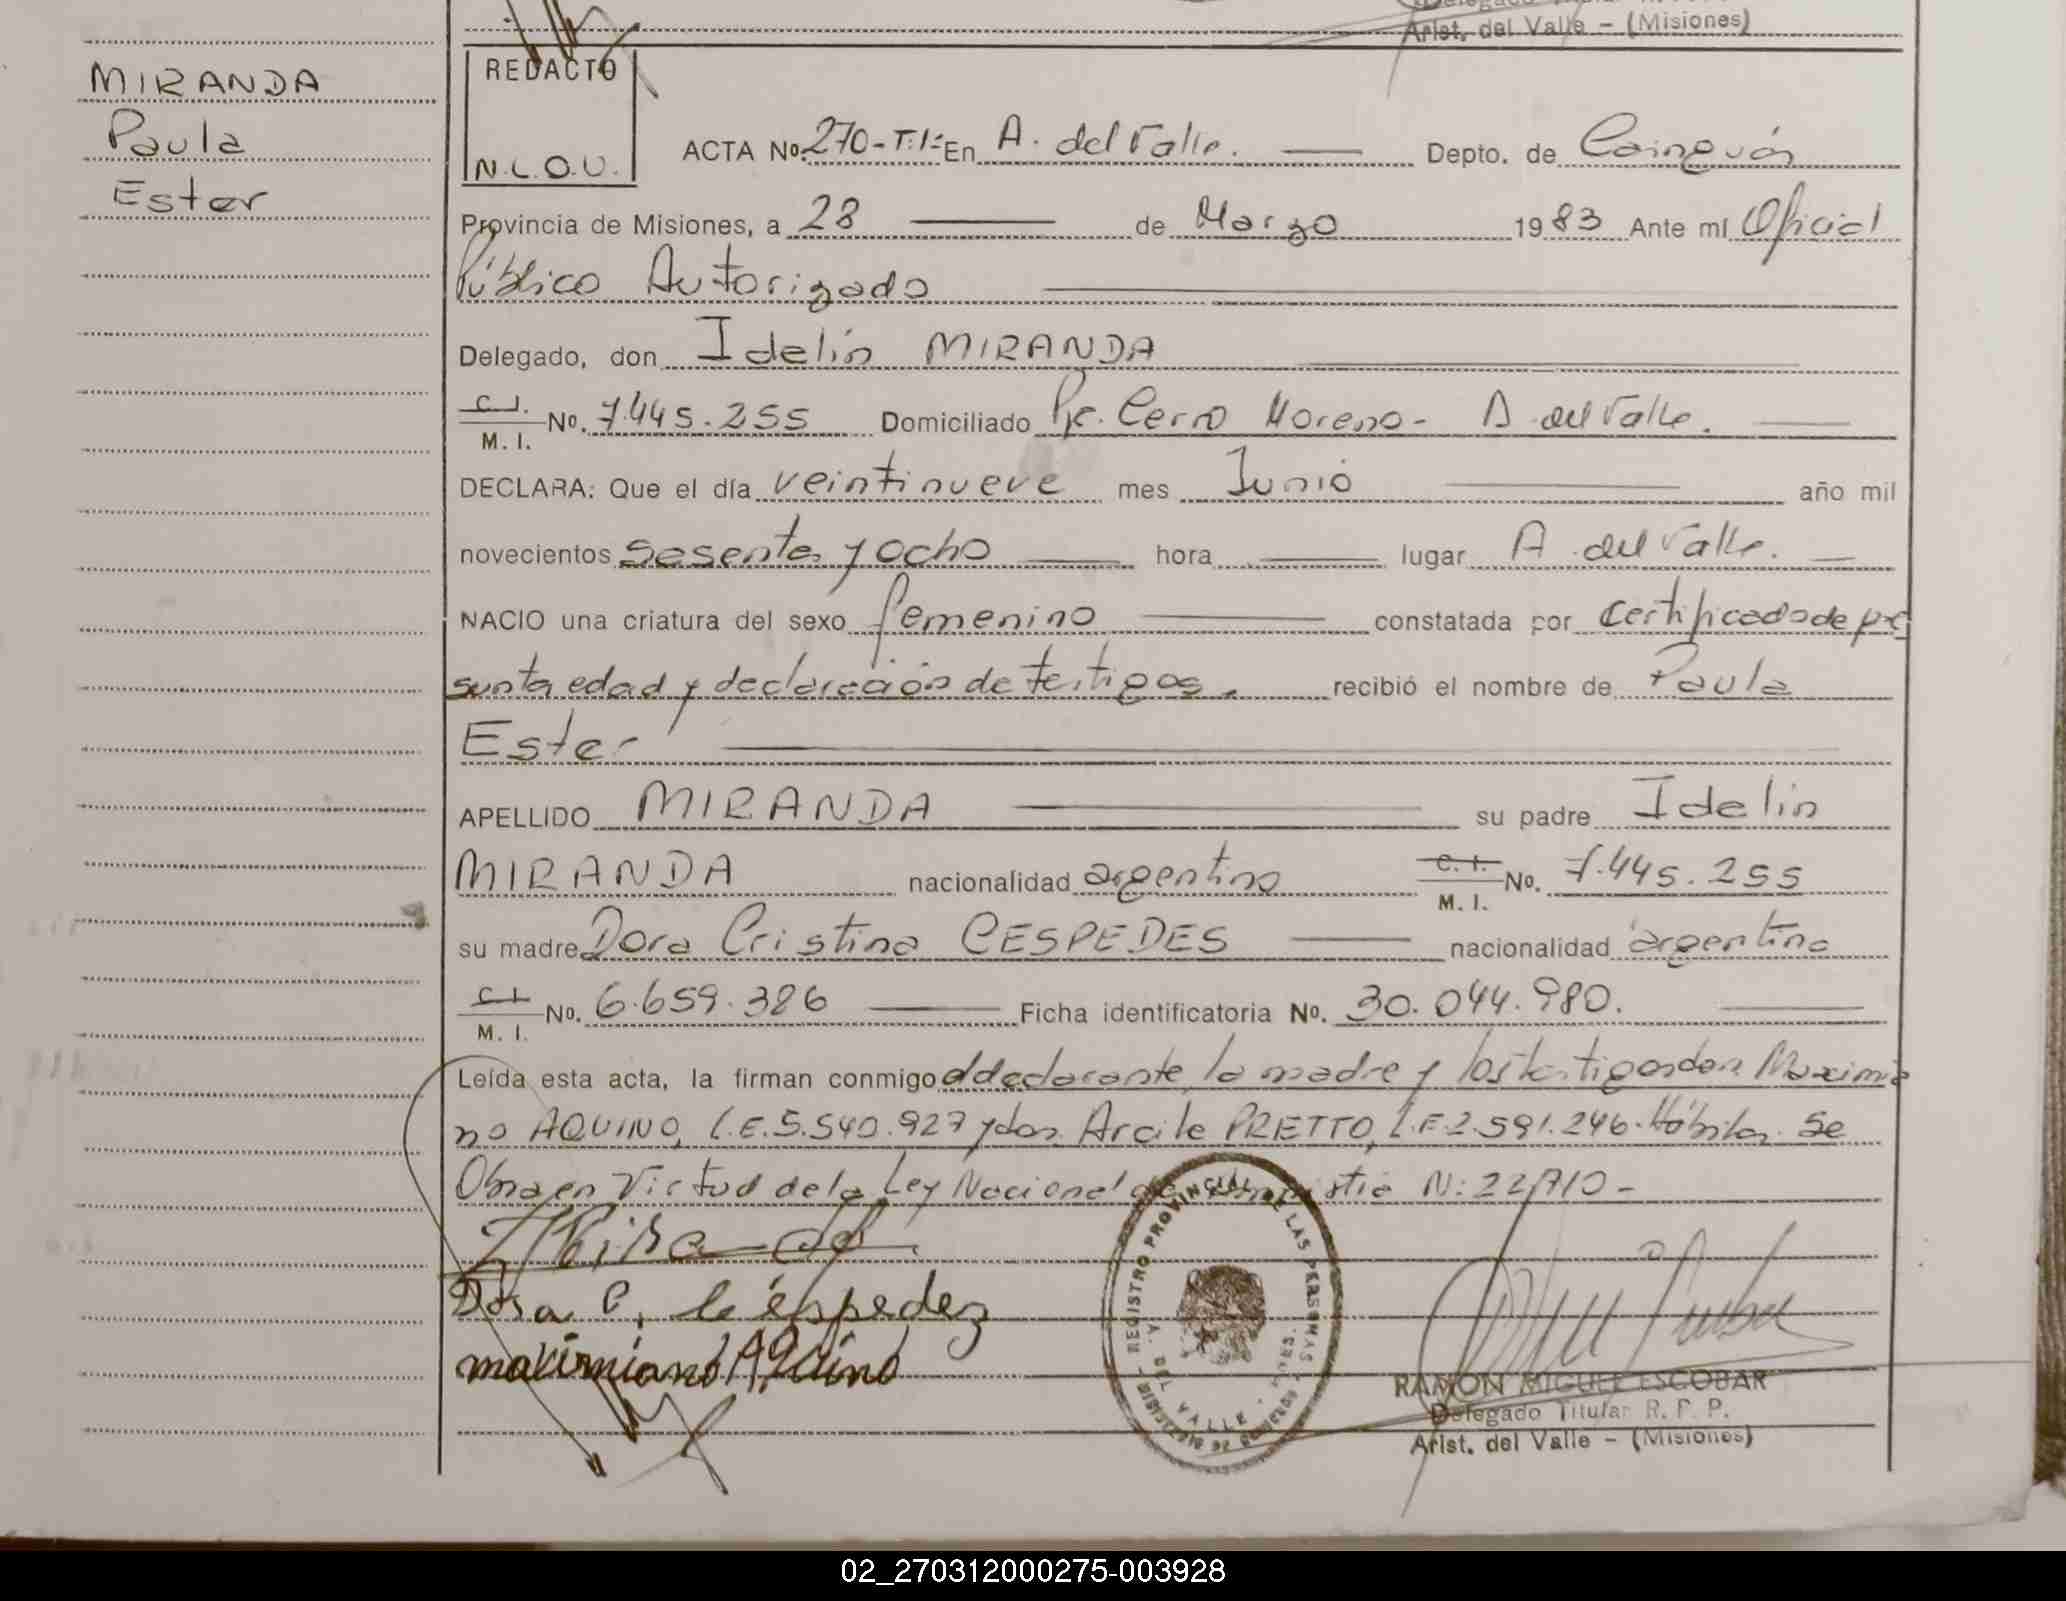 Arist. del Valle - (Misiones)
MIRANDA
Paula
Ester
REDACTO
N.L.O.U.
ACTA No. 270-T:1:- En A. del Valle. Depto. de Cainguás
Provincia de Misiones, a 28 de Marzo 1983 Ante mí Oficial
Público Autorizado
Delegado, don Idelin MIRANDA
C.I. M. I. No. 7.445.255 Domiciliado Pje. Cerro Moreno - A. del Valle.
DECLARA: Que el día veintinueve mes Junio año mil
novecientos sesenta y ocho hora lugar A. del Valle.
NACIO una criatura del sexo femenino constatada por certificado de pre
sunta edad y declaración de testigos. recibió el nombre de Paula
Ester
APELLIDO MIRANDA su padre Idelin
MIRANDA nacionalidad argentino C. I. M. I. No. 7.445.255
su madre Dora Cristina CESPEDES nacionalidad argentina
C.I. M. I. No. 6.659.326 Ficha identificatoria No. 30.044.980.
Leída esta acta, la firman conmigo el declarante, la madre y los testigos don Maximia
no AQUINO, L.E. 5.540.927 y don Arcile PRETTO, L.E. 2.591.246. Hábiles. Se
Obra en Virtud de la Ley Nacional de Amnistia N: 22710-
Dora C. de cespedez
maximiano Aquino
REGISTRO PROVINCIAL DE LAS PERSONAS
A. DEL VALLE
RAMON MIGUEL ESCOBAR
Delegado Titular R. P. P.
Arist. del Valle - (Misiones)
02_270312000275-003928